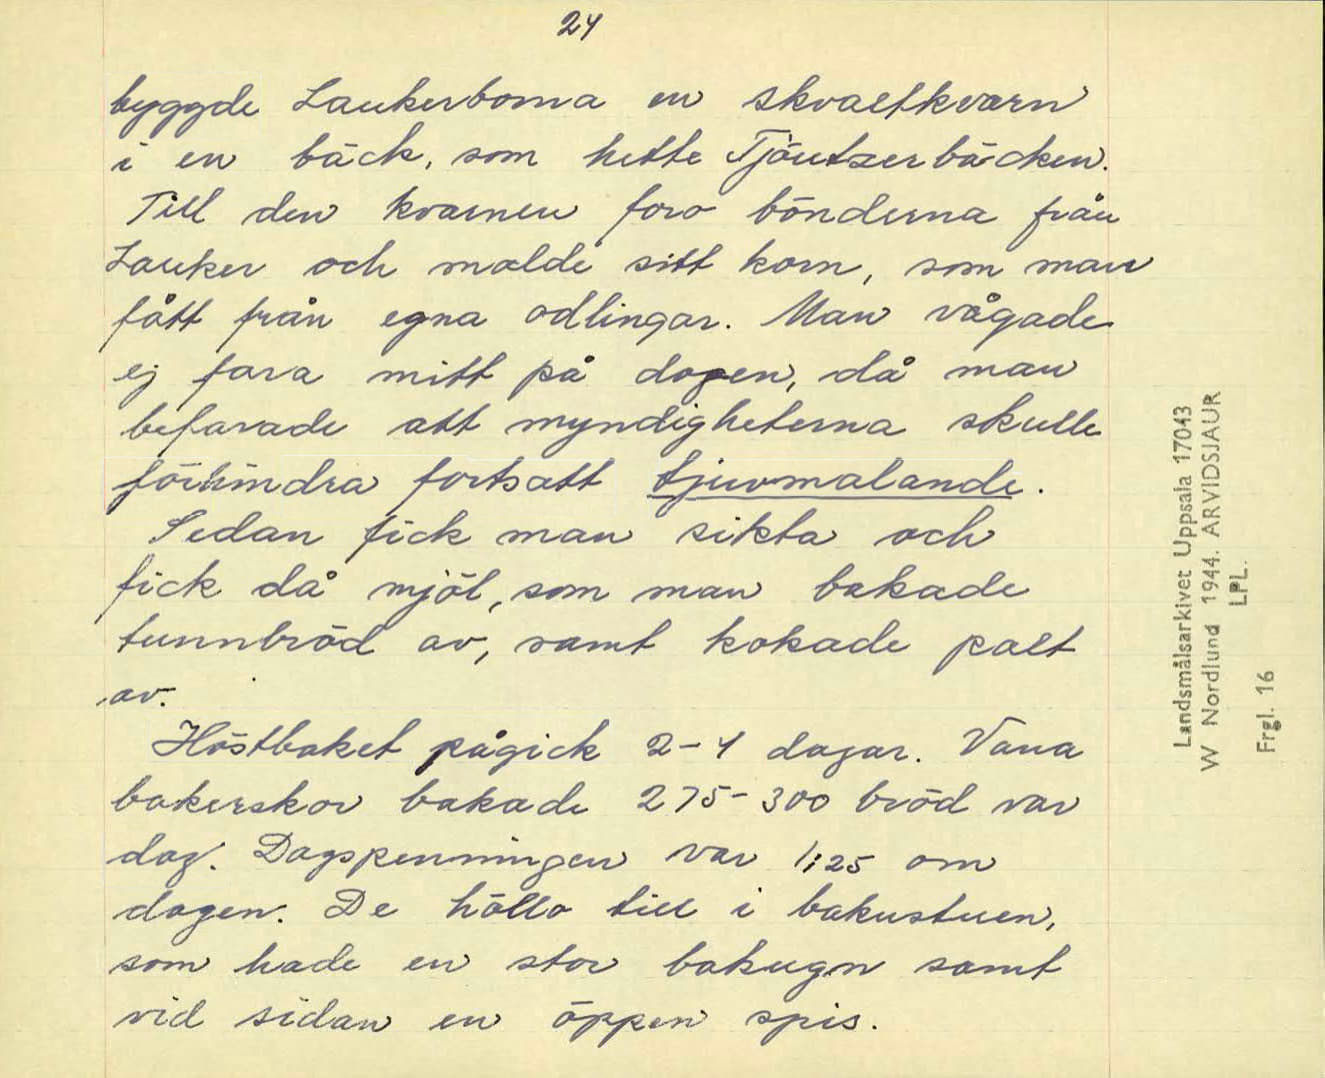 24
byggde Laukerborna en skvaltkvarn
i en bäck, som hette Tjäutzerbäcken.
Till den kvarnen foro bönderna från
Lauker och malde sitt korn, som man
fått från egna odlingar. Man vågade
ej fara mitt på dagen, då man
befarade att myndigheterna skulle
förhindra fortsatt tjuvmalande.
Sedan fick man sikta och
fick då mjöl, som man bakade
tunnbröd av, samt kokade palt
av.
Höstbaket pågick 2-4 dagar. Vana
bakerskor bakade 275-300 bröd var
dag. Dagspenningen var 1:25 om
dagen. De höllo till i bakustuen,
som hade en stor bakugn samt
vid sidan en öppen spis.
Landsmålsarkivet Uppsala 17043
W Nordlund 1944. ARVIDSJAUR
LPL.
Frgl. 16